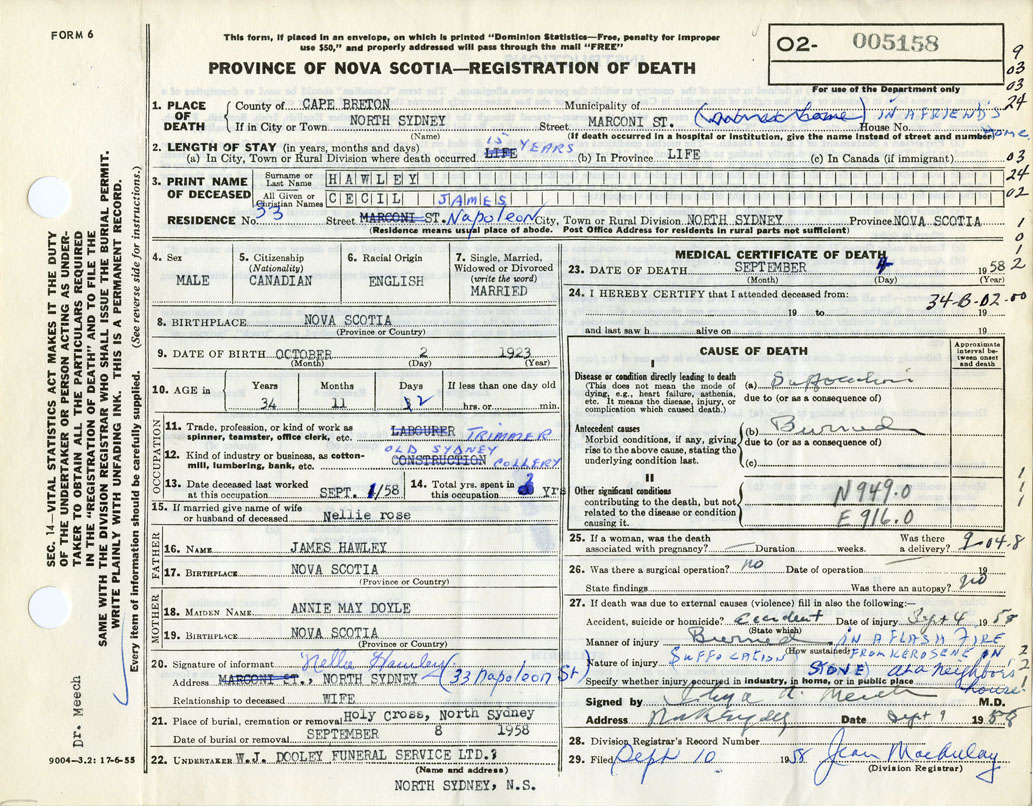 FORM 6
This form, if placed in an envelope, on which is printed "Dominion Statistics—Free, penalty for improper
use $50," and properly addressed will pass through the mail "FREE"
PROVINCE OF NOVA SCOTIA—REGISTRATION OF DEATH
02- 005158
For use of the Department only
9
03
03
24
03
24
02
1
0
1
2
1. PLACE OF DEATH County of CAPE BRETON Municipality of (married home) IN A FRIEND'S Home
If in City or Town NORTH SYDNEY Street MARCONI ST. House No.
(Name) (If death occurred in a hospital or institution, give the name instead of street and number)
2. LENGTH OF STAY (in years, months and days)
(a) In City, Town or Rural Division where death occurred LIFE 15 YEARS (b) In Province LIFE (c) In Canada (if immigrant)
3. PRINT NAME OF DECEASED
Surname or Last Name HAWLEY
All Given or Christian Names CECIL JAMES
RESIDENCE No. 33 Street MARCONI ST. Napoleon City, Town or Rural Division NORTH SYDNEY Province NOVA SCOTIA
(Residence means usual place of abode. Post Office Address for residents in rural parts not sufficient)
4. Sex MALE
5. Citizenship (Nationality) CANADIAN
6. Racial Origin ENGLISH
7. Single, Married, Widowed or Divorced (write the word) MARRIED
8. BIRTHPLACE NOVA SCOTIA
(Province or Country)
9. DATE OF BIRTH OCTOBER 2 1923
(Month) (Day) (Year)
10. AGE in Years 34 Months 11 Days 2 If less than one day old hrs. or min.
OCCUPATION
11. Trade, profession, or kind of work as spinner, teamster, office clerk, etc. LABOURER TRIMMER
12. Kind of industry or business, as cotton-mill, lumbering, bank, etc. CONSTRUCTION OLD SYDNEY COLLERY
13. Date deceased last worked at this occupation SEPT. 1/58
14. Total yrs. spent in this occupation 2 Yrs
15. If married give name of wife or husband of deceased Nellie rose
FATHER
16. NAME JAMES HAWLEY
17. BIRTHPLACE NOVA SCOTIA
(Province or Country)
MOTHER
18. MAIDEN NAME ANNIE MAY DOYLE
19. BIRTHPLACE NOVA SCOTIA
(Province or Country)
20. Signature of informant Nellie Hawley
Address MARCONI ST., NORTH SYDNEY (33 Napoleon St)
Relationship to deceased WIFE
21. Place of burial, cremation or removal Holy Cross, North Sydney
Date of burial or removal SEPTEMBER 8 1958
22. UNDERTAKER W.J. DOOLEY FUNERAL SERVICE LTD.
(Name and address)
NORTH SYDNEY, N.S.
MEDICAL CERTIFICATE OF DEATH
23. DATE OF DEATH SEPTEMBER 4 1958
(Month) (Day) (Year)
24. I HEREBY CERTIFY that I attended deceased from: 34-B-02-00
19 to 19
and last saw h alive on 19
CAUSE OF DEATH
Approximate interval between onset and death
I
Disease or condition directly leading to death
(This does not mean the mode of dying, e.g., heart failure, asthenia, etc. It means the disease, injury, or complication which caused death.)
(a) Suffocation
due to (or as a consequence of)
Antecedent causes
Morbid conditions, if any, giving rise to the above cause, stating the underlying condition last.
(b) Burned
due to (or as a consequence of)
(c)
II
Other significant conditions
contributing to the death, but not related to the disease or condition causing it.
N949.0
E916.0
1
1
1
25. If a woman, was the death associated with pregnancy? Duration weeks. Was there a delivery? 9-04-8
26. Was there a surgical operation? no Date of operation 19
State findings Was there an autopsy? no
27. If death was due to external causes (violence) fill in also the following:—
Accident, suicide or homicide? accident Date of injury Sept 4 1958
(State which)
Manner of injury Burned IN A FLASH FIRE
(How sustained)
Nature of injury SUFFOCATION (FROM KEROSENE ON STOVE) at a neighbors house
Specify whether injury occurred in industry, in home, or in public place
2
2
1
Signed by M.D.
Address Date Sept 9 1958
28. Division Registrar's Record Number
29. Filed Sept 10 1958 Jean MacAulay
(Division Registrar)
SEC. 14—VITAL STATISTICS ACT MAKES IT THE DUTY
OF THE UNDERTAKER OR PERSON ACTING AS UNDER-
TAKER TO OBTAIN ALL THE PARTICULARS REQUIRED
IN THE "REGISTRATION OF DEATH" AND TO FILE THE
SAME WITH THE DIVISION REGISTRAR WHO SHALL ISSUE THE BURIAL PERMIT.
WRITE PLAINLY WITH UNFADING INK. THIS IS A PERMANENT RECORD.
Every item of information should be carefully supplied. (See reverse side for instructions.)
Dr. Meech
9004-3.2: 17-6-55